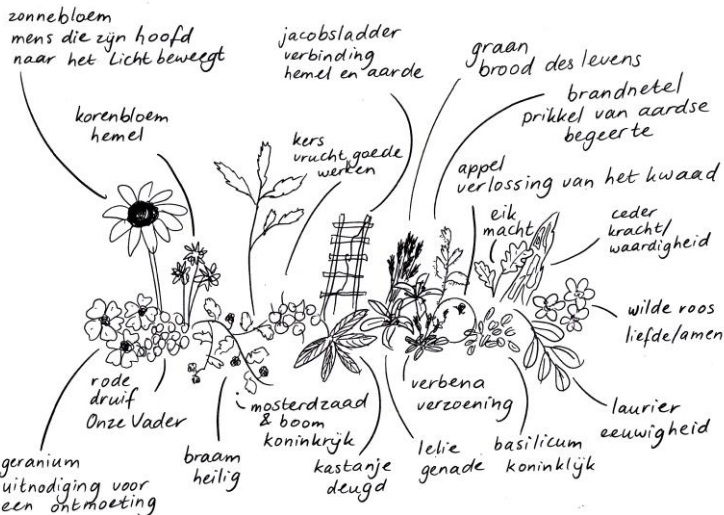 zonnebloem
mens die zijn hoofd
naar het licht beweegt
korenbloem
hemel
jacobsladder
verbinding
hemel en aarde
kers
vrucht goede
werken
graan
brood des levens
brandnetel
prikkel van aardse
begeerte
appel
verlossing van het kwaad
eik
macht
ceder
kracht/
waardigheid
wilde roos
liefde/amen
laurier
eeuwigheid
basilicum
koninklijk
verbena
verzoening
lelie
genade
kastanje
deugd
mosterdzaad
& boom
koninkrijk
braam
heilig
rode
druif
Onze Vader
geranium
uitnodiging voor
een ontmoeting